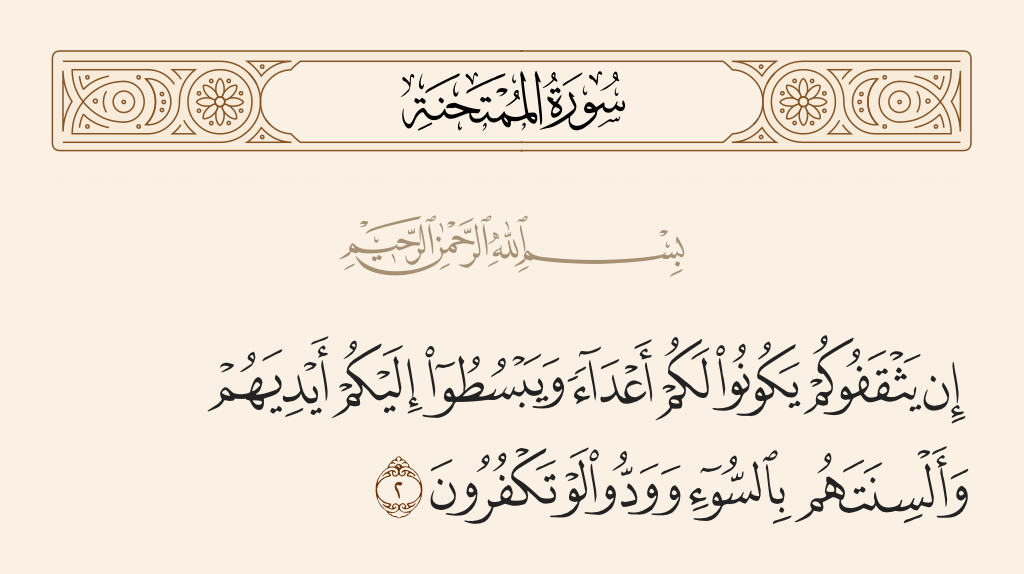 سُورَةُ الْمُمْتَحَنَةِ
بِسْمِ ٱللَّهِ ٱلرَّحْمَٰنِ ٱلرَّحِيمِ
إِن يَثْقَفُوكُمْ يَكُونُوا۟ لَكُمْ أَعْدَآءً وَيَبْسُطُوٓا۟ إِلَيْكُمْ أَيْدِيَهُمْ
وَأَلْسِنَتَهُم بِٱلسُّوٓءِ وَوَدُّوا۟ لَوْ تَكْفُرُونَ ٢